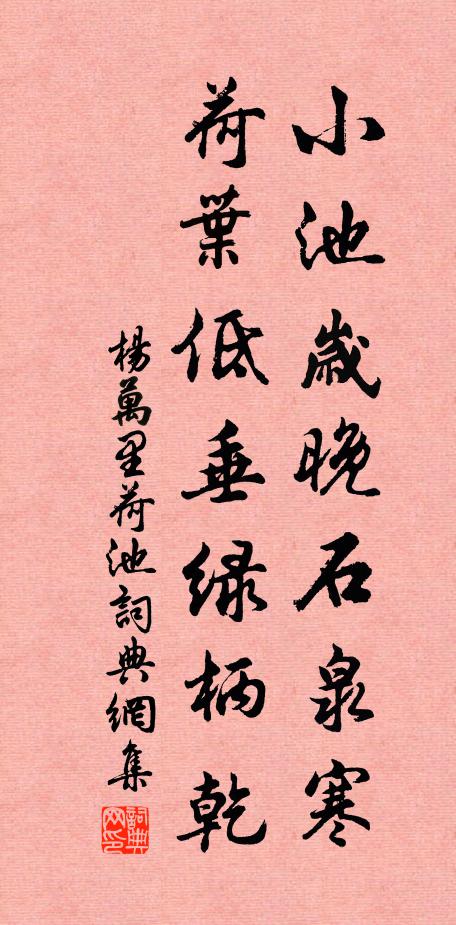 小池歲晚石泉寒
荷葉低垂綠柄乾
楊萬里荷池詞典網集
詞典网印